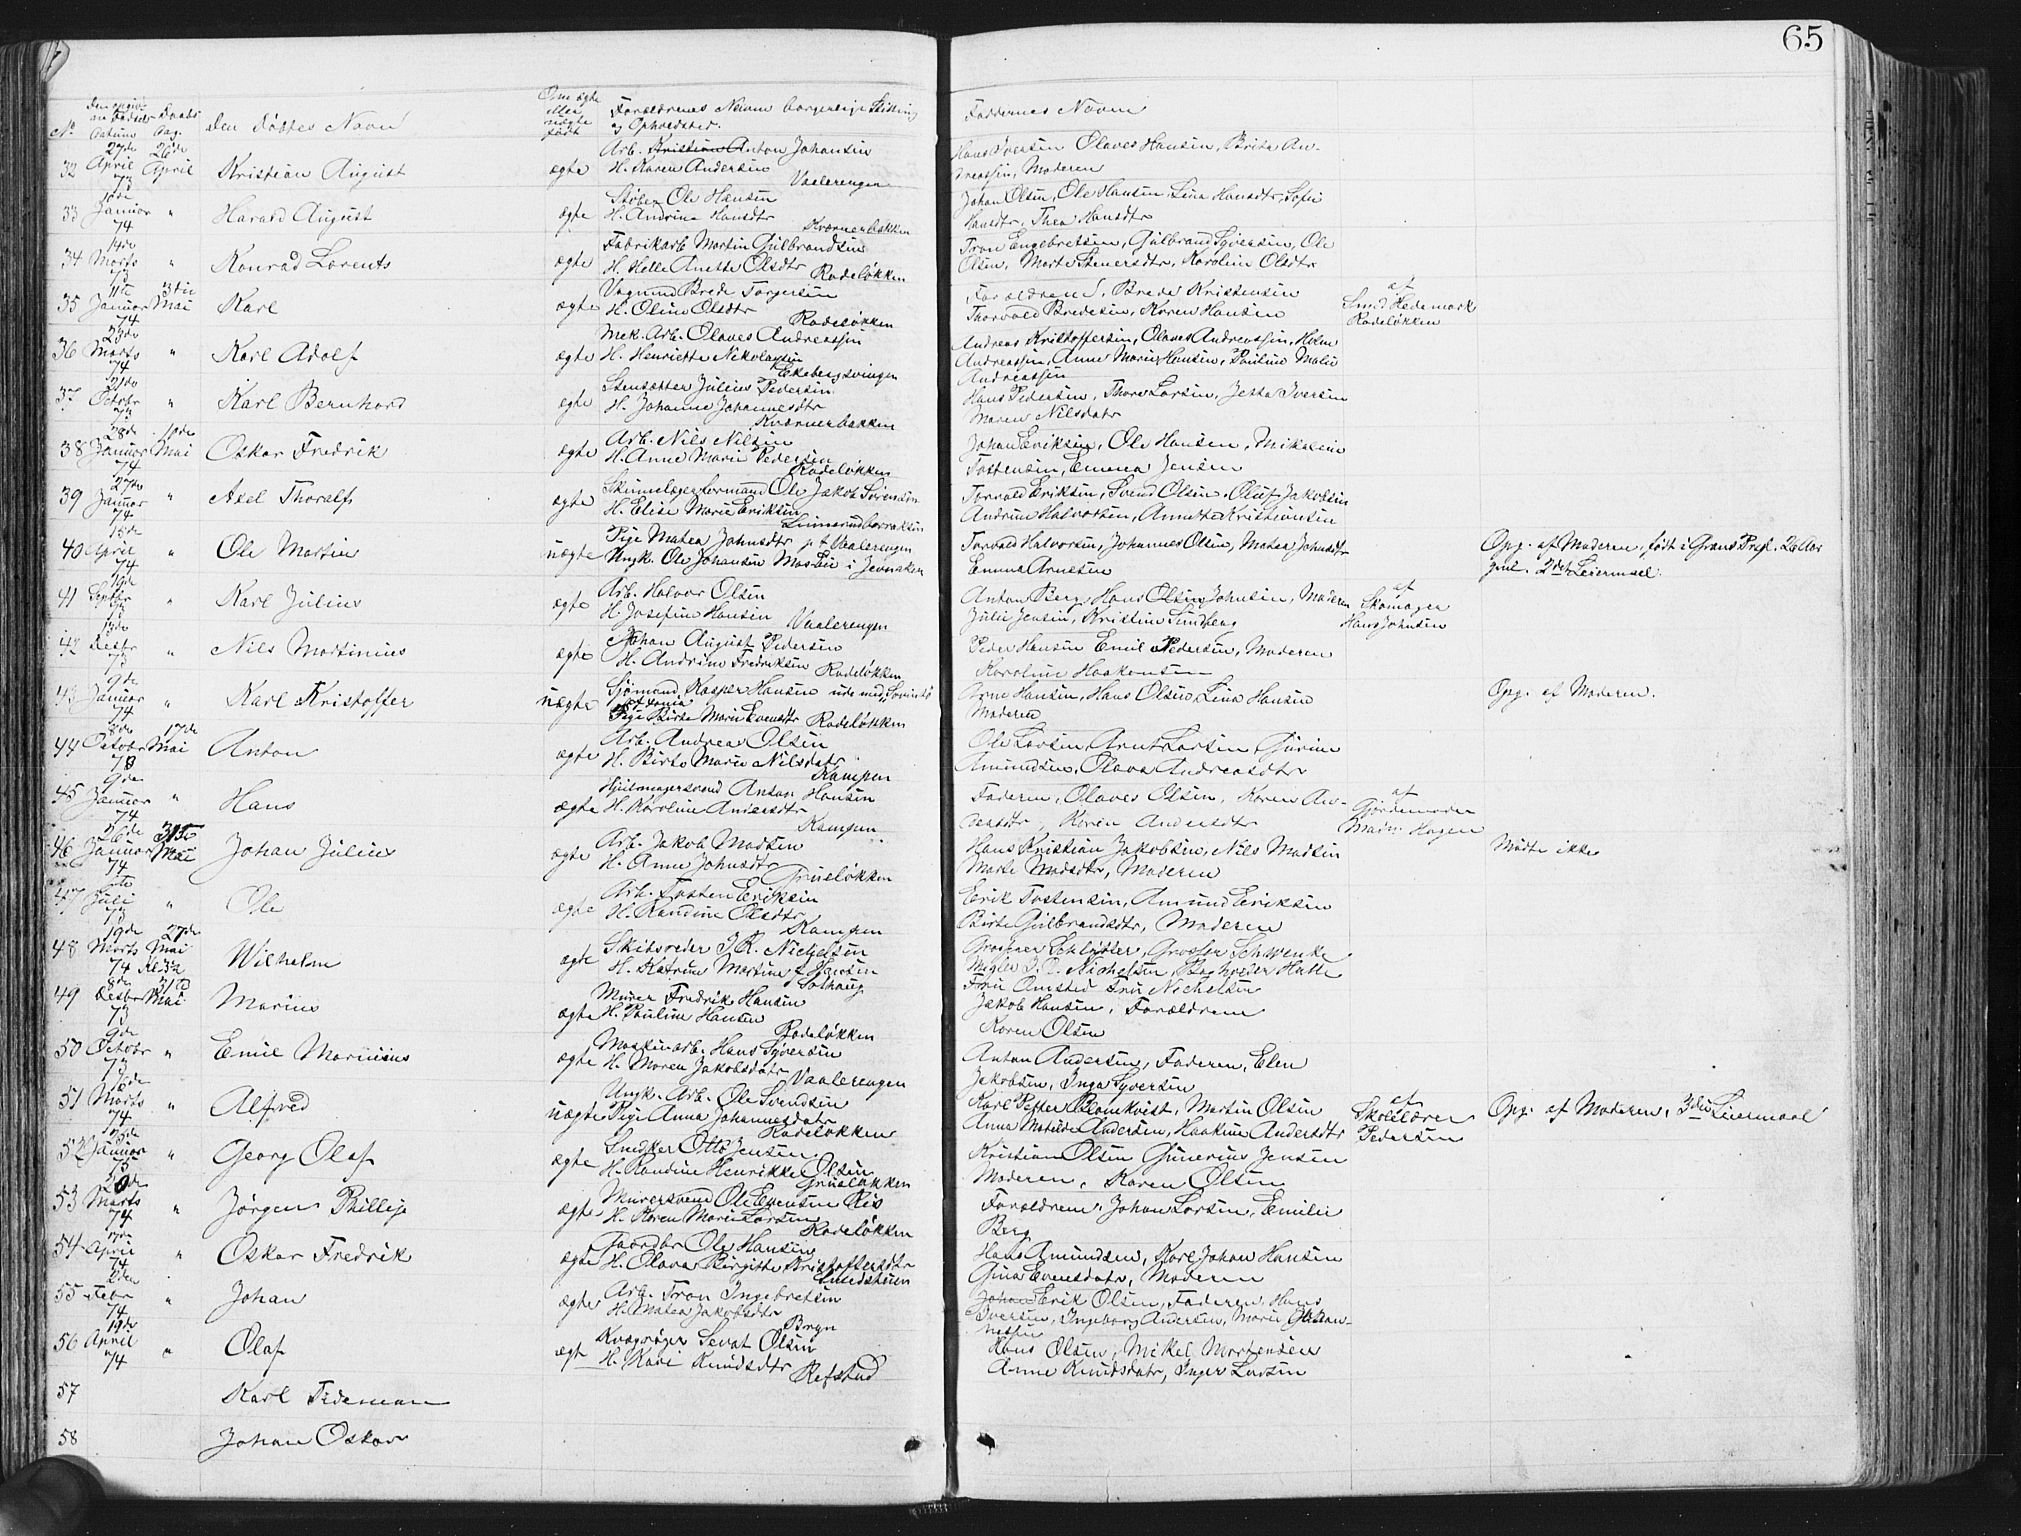 65
No
Den Døbtes Navn
Om ægte
eller
uægte
født
Forældrenes Navne borgerlige Stilling
og Opholdsted.
Faddernes Navne
27de 26de
32 April April Kristian August ægte Arb. Kristian Anton Johansen
73 H. Karen Andersen
Vaalerengen
Hans Iversen Olaves Hansen, Brita An-
dreassen, Moderen
33 Januar " Harald August ægte Støber Ole Hansen
74 H. Andrine Hansdtr
Kværnerbakken
Johan Olsen, Ole Hansen, Lina Hansdtr, Sofie
Hansdtr, Thea Hansdtr
14de
34 Marts " Konrad Lorents ægte Fabrikarb Martin Gulbrandsen
73 H. Helle Anette Olsdtr Rodeløkken
Tron Engebretsen, Gulbrand Syversen, Ole
Olsen, Marte Steversdtr, Karoline Olsdtr
11te 3die
35 Januar Mai Karl ægte Vognmd Brede Torgersen
74 H. Oline Olsdtr
Rodeløkken
Forældrene, Brede Kristensen
Thorvald Bredesen, Karen Hansen
af
Smed Hedemark
Rodeløkken
23de
36 Marts " Karl Adolf ægte Mek. Arb. Olaves Andreassen
74 H. Henriette Nikolaysen
Ekebergsvingen
Andreas Kristoffersen, Olaves Andreassen, Helene
Andreassen, Anne Marie Hansen, Pauline Malie
Andreassen
21de
37 Octobr " Karl Bernhard ægte Stensætter Julius Pedersen
73 H. Johanne Johannesdtr
Kværnerbakken
Hans Pedersen, Thore Larsen, Jetta Iversen
Maren Nilsdatr
28de 10de
38 Januar Mai Oskar Fredrik ægte Arb. Nils Nilsen
74 H. Anne Marie Pedersen
Rodeløkken
Johan Eriksen, Ole Hansen, Mikaline
Tostensen, Emma Jensen
27de
39 Januar " Axel Thoralf ægte Skinnelægerformand Ole Jakob Sørensen
74 H. Elise Marie Eriksen
Torvald Eriksen, Svend Olsen, Oluf Jakobsen
Andrine Halvorsen, Annette Kristiansen
15de
40 April " Ole Martin uægte Pige Matea Johnsdtr p t Vaalerengen
74 Ungk. Ole Johansen Moslie i Jevnaker
Torvald Halvorsen, Johannes Olsen, Matea Johnsdtr
Emma Arnesen
Opg. af Moderen, født i Grans Prgl. 26 Aar
gml. 2det Leiermaal.
19de
41 Septbr " Karl Julius ægte Arb. Halvor Olsen
73 H. Josefine Hansen Vaalerengen
Anton Berg, Hans Olsen Johnsen, Moderen
Julie Jensen, Kristine Sundberg
af
Skomager
Hans Johnsen
13de
42 Desbr " Nils Martinius ægte Johan August Pedersen
73 H. Andrine Fredriksen Rodeløkken
Peder Hansen Emil Pedersen, Moderen
Karoline Haakensen
9de
43 Januar " Karl Kristoffer uægte Sjømand Kasper Hansen ude med
74 Pige Birte Marie Evensdtr Rodeløkken
Arne Hansen, Hans Olsen, Lina Hansen
Moderen
Opg. af Moderen.
8de 17de
44 Octobr Mai Anton ægte Arb. Andreas Olsen
73 H. Birte Marie Nilsdatr
Kampen
Ole Larsen, Arnt Larsen, Gurine
Amundsen, Olava Andreasdtr
9de
45 Januar " Hans ægte Hjulmagersvend Anton Hansen
74 H. Karoline Andersdtr
Kampen
Faderen, Olaves Olsen, Karen An-
dersdtr, Karen Andersdtr
af
Gjordemoder
Madm. Hagen
26de 31te
46 Januar Mai Johan Julius ægte Arb. Jakob Madsen
74 H. Anne Johnsdtr
Grueløkken
Hans Kristian Jakobsen, Nils Madsen
Marte Madsdtr, Moderen
Mødte ikke
47 Juli " Ole ægte Arb. Tosten Eriksen
73 H. Randine Olsdtr
Kampen
Erik Tostensen, Amund Eriksen
Birte Gulbrandsdtr, Moderen
19de 27de
48 Marts Mai Wilhelm ægte Skibsreder J. R. Nichelsen
74 H. Katrine Martine f Hansen
Solhaug
Grosserer Schløtter, Grosser Schwenke
Mægler J. O. Nichelsen, Bogholder Halle
Fru Onsted Fru Nichelsen
8de 31te
49 Desbr Mai Marius ægte Murer Fredrik Hansen
73 H. Pauline Hansen
Rodeløkken
Jakob Hansen, Forældrene
Karen Olsen
9de
50 Octobr " Emil Marinius ægte Maskinarb. Hans Syversen
73 H. Maren Jakobsdatr
Vaalerengen
Anton Andersen, Faderen, Elen
Jakobsen, Inga Syversen
16de
51 Marts " Alfred uægte Ungk. Arb. Ole Svendsen
74 Pige Anna Johannesdatr
Rodeløkken
Karl Petter Blomkvist, Martin Olsen
Anna Matilde Andersen, Haakine Andersdtr
af
Skolelærer
Pedersen
Opg. af Moderen, 3die Leiermaal
52 Januar " Georg Olaf ægte Snedker Otto Jensen
73 H. Randine Henrikke Olsen
Grueløkken
Kristian Olsen Gunerius Jensen
Moderen, Karen Olsen
20de
53 Marts " Jørgen Phillip ægte Murersvend Ole Evensen Riis
74 H. Karen Marie Larsen
Rodeløkken
Forældrene, Johan Larsen, Emilie
Berg
17de
54 April " Oskar Fredrik ægte Gaardbr Ole Hansen
74 H. Olava Birgitte Kristoffersdtr
Smedstuen
Hans Amundsen, Karl Johan Hansen
Gina Evensdatr, Moderen
2den
55 Febr " Johan ægte Arb. Tron Ingebretsen
74 H. Matea Jakobsdtr
Bryn
Johan Erik Olsen, Faderen, Hans
Iversen, Ingeborg Andersen, Marie Johan-
nessen
19de
56 April " Olaf ægt Kvægrøgter Sevat Olsen
74 H. Kari Knudsdtr
Refstad
Hans Olsen, Mikel Mortensen
Anne Knudsdatr, Inger Larsen
57 Karl Tideman
58 Johan Oskar